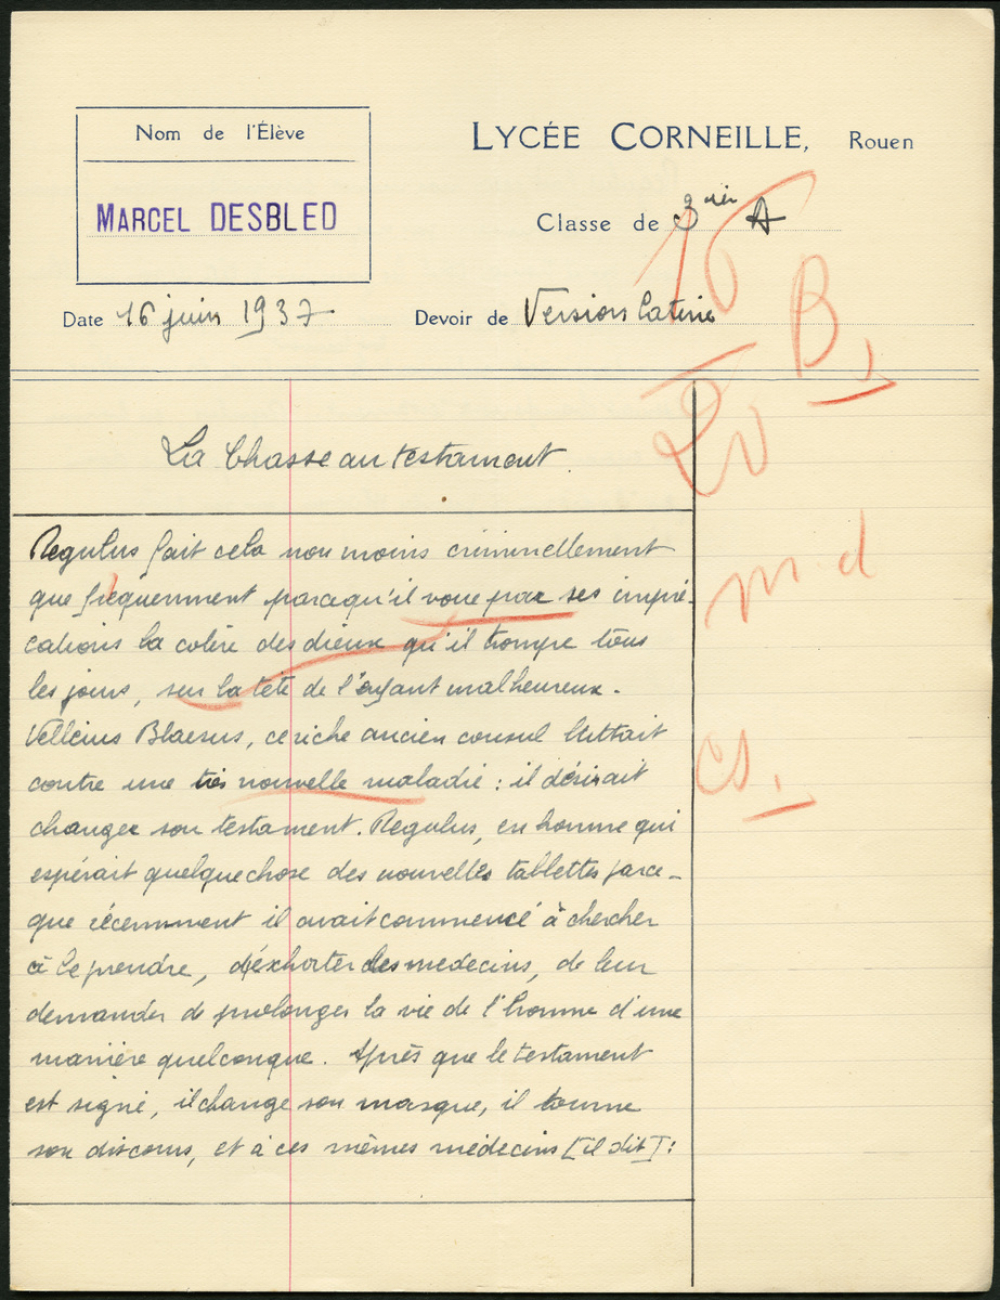 Nom de l'Élève
MARCEL DESBLED
LYCÉE CORNEILLE, Rouen
Classe de 3ième A
Date 16 juin 1937
Devoir de Version latine
16
20
B
La Chasse au testament.
Regulus fait cela non moins criminellement
que fréquemment parcequ'il voue par ses impré-
cations la colère des dieux qu'il trompe tous
les jours, sur la tête de l'enfant malheureux.
m. d
Velleius Blaesus, ce riche ancien consul luttait
contre une très nouvelle maladie : il désirait
cs.
changer son testament. Regulus, en homme qui
espérait quelquechose des nouvelles tablettes parce-
que récemment il avait commencé à chercher
à le prendre, d'exhorter les medecins, de leur
demander de prolonger la vie de l'homme d'une
manière quelconque. Après que le testament
est signé, il change son masque, il tourne
son discours, et à ces mêmes médecins [il dit] :